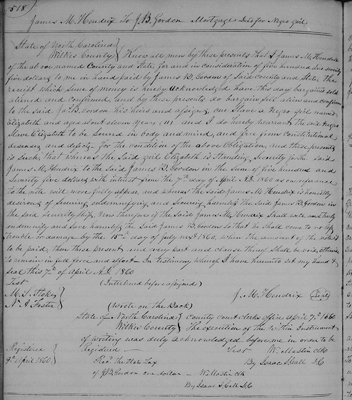 518
James M. Hendrix To J. B. Gordon Mortgage Sale for Negro girl
State of North Carolina
Wilkes County Know all men by these presents that I James M. Hendrix
of the above named County and State for and in consideration of five hundred and seventy
five dollars to me in hand paid by James B. Gordon of said County and State, the
receipt which sum of money is hereby acknowledged have this day bargained sold
aliened and confirmed and by these presents do bargain sell alien and confirm
to the said his heirs and assigns, one Slave a Negro girl named
Elizabeth and aged about eleven years, and I do hereby warrant the said Negro
Slave Elizabeth to be Sound in body and mind, and free from Constitutional
diseases and defects. For the condition of the above Obligation, and these presents
is such, that whereas the said girl Elizabeth is Standing Security for the said
James M. Hendrix to the said James B. Gordon in the sum of five hundred and
Seventy five dollars with interest from the 7th day of April A.D. 1860 as reference
to the note, will more fully appear, and whereas the said James M. Hendrix is honestly
desirous of securing, indemnifying, and Saving harmless the said James B. Gordon in
the said Securityship. Now therefore if the said James M. Hendrix Shall well and truly
indemnify and Save harmless the said James B. Gordon so that he shall come to no
trouble or damage by the day of July next 1860, when the amount of the note is
to be paid, then these presents and every part and clause thereof Shall be void, otherwise
to remain in full force and effect. In testimony whereof I have hereunto set my hand &
seal this 7th of April A.D. 1860
Test (Interlined before assigned)
M. S. Stokes J. M. Hendrix (Seal)
A. A. Foster (Wrote on the Back)
State of North Carolina County Court Clerks Office April 7th 1860
Wilkes County The execution of the within Instrument
of writing was duly acknowledged before me in order to be
Registered Registered Test W. Mastin Clk
9th April 1860 Recd the State Tax By Isaac S. Call D.C.
of J. B. Gordon one dollar W. Mastin Clk
By Isaac S. Call D.C.